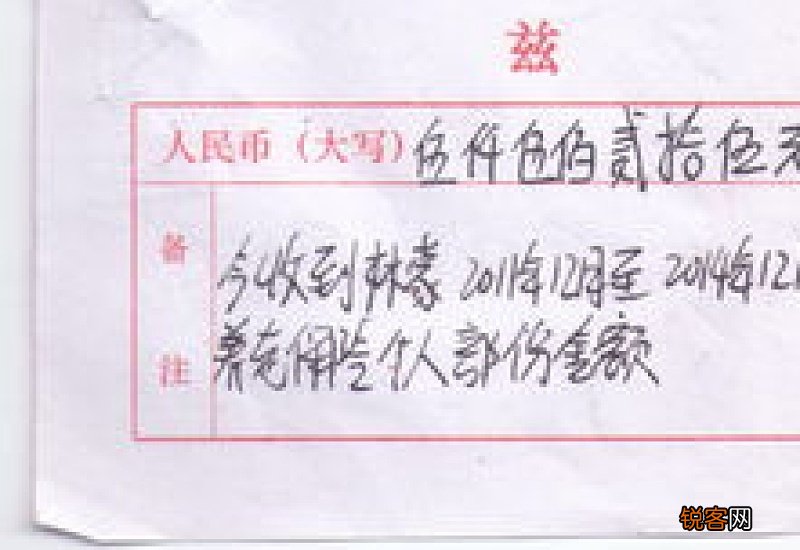 兹
人民币（大写）伍仟伍佰贰拾伍
备 今收到林 2011年12月至2014年12
注 养老保险个人部份金额
锐客网